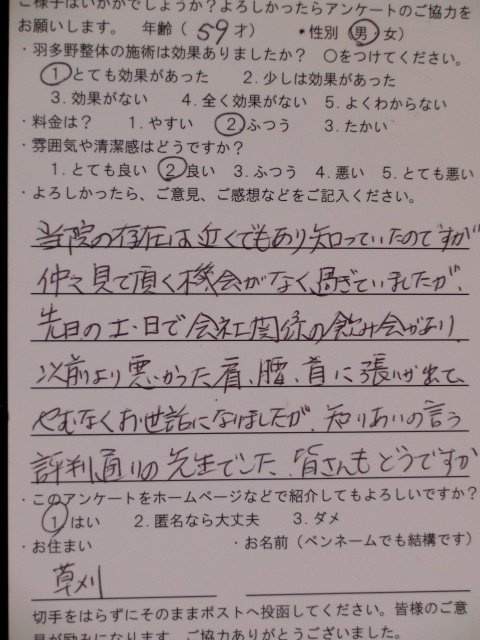 ご様子はいかがでしょうか？よろしかったらアンケートのご協力を
お願いします。 年齢（ 59 才） *性別（男・女）
・羽多野整体の施術は効果ありましたか？ ○をつけてください。
1.とても効果があった 2.少しは効果があった
3.効果がない 4.全く効果がない 5.よくわからない
・料金は？ 1.やすい 2.ふつう 3.たかい
・雰囲気や清潔感はどうですか？
1.とても良い 2.良い 3.ふつう 4.悪い 5.とても悪い
・よろしかったら、ご意見、ご感想などをご記入ください。
当院の存在は近くでもあり知っていたのですが
仲々見て頂く機会がなく、過ぎていましたが、
先日の土・日で会社関係の飲み会があり、
以前より悪かった肩、腰、首に張りが出て、
やむなくお世話になりましたが、知りあいの言う
評判通りの先生でした。皆さんもどうですか
・このアンケートをホームページなどで紹介してもよろしいですか？
1.はい 2.匿名なら大丈夫 3.ダメ
・お住まい ・お名前（ペンネームでも結構です）
草刈
切手をはらずにそのままポストへ投函してください。皆様のご意
見が励みになります。ご協力ありがとうございました。